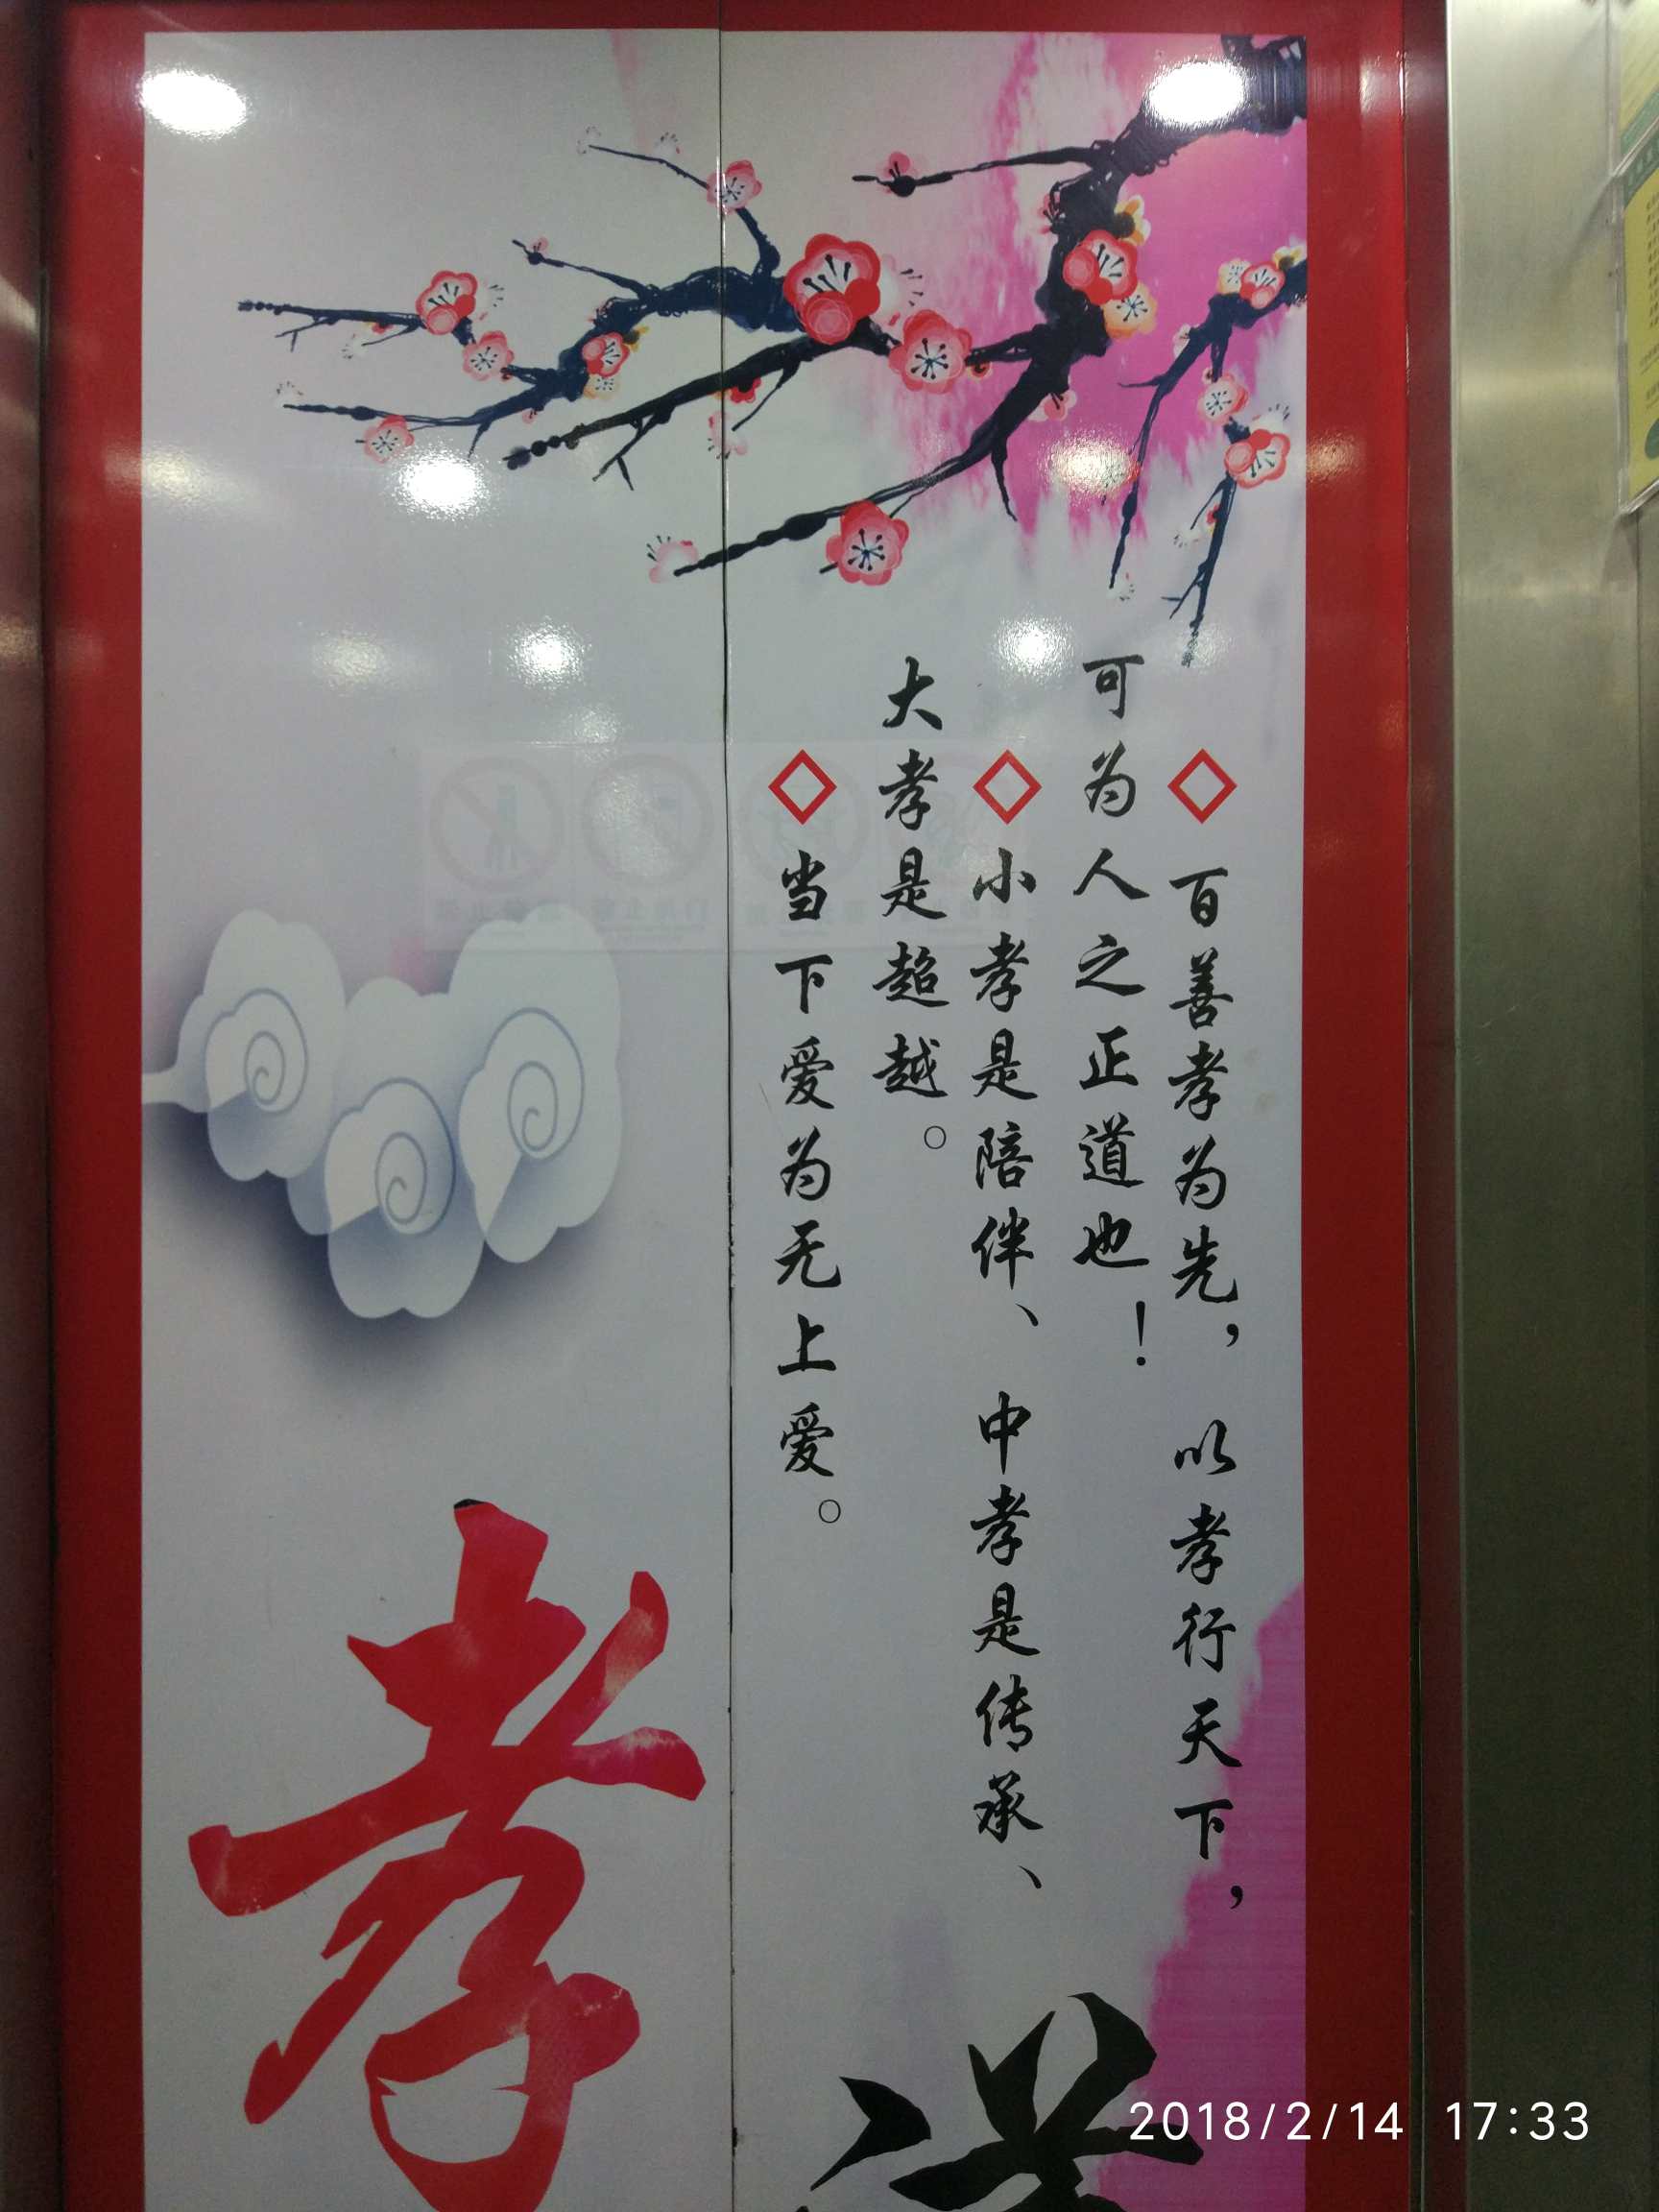 ◇百善孝为先，以孝行天下，
可为人之正道也！
◇小孝是陪伴、中孝是传承、
大孝是超越。
◇当下爱为无上爱。
孝
2018/2/14 17:33